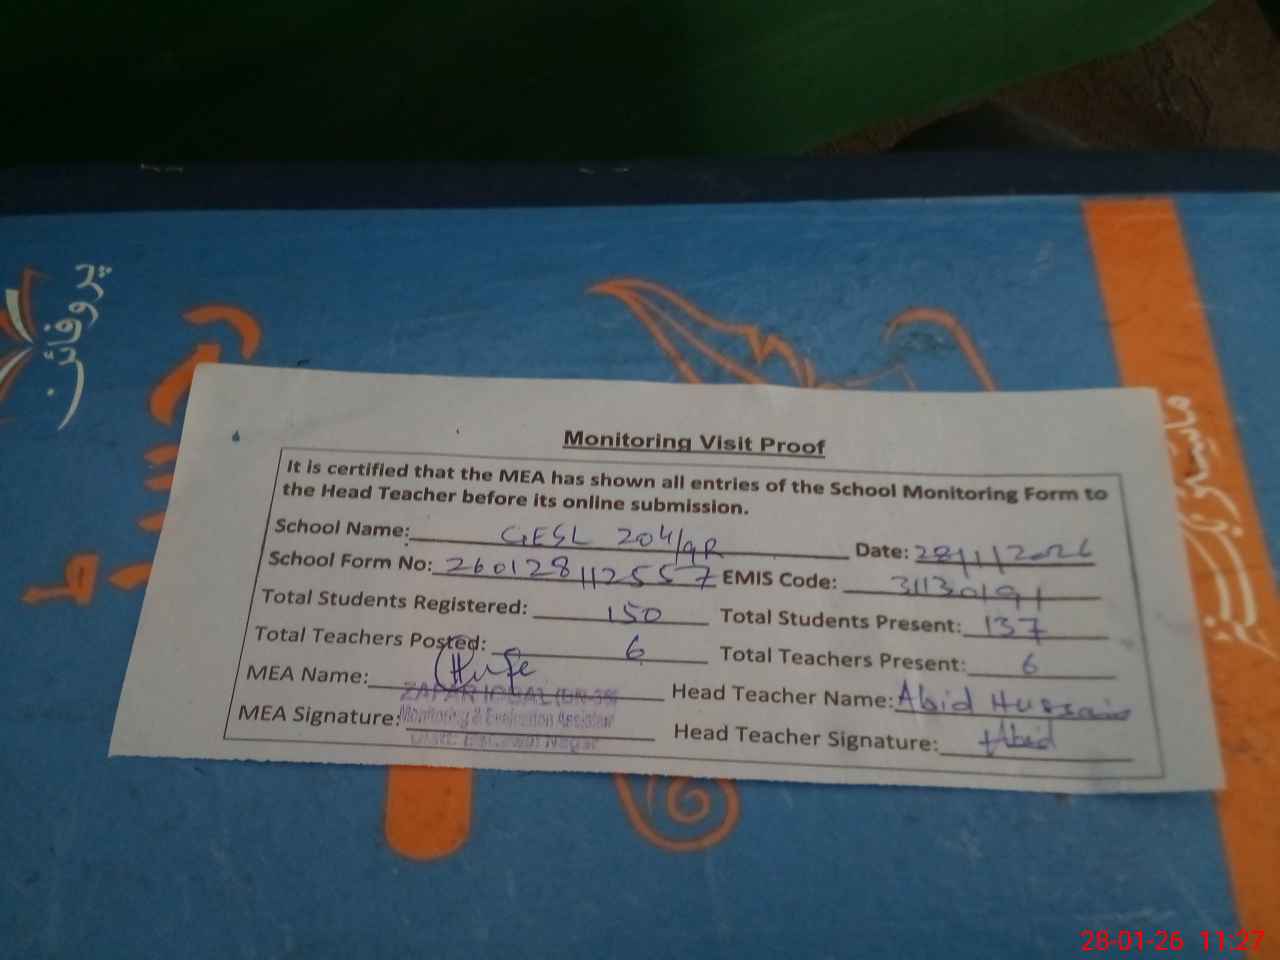 پروفائل
Monitoring Visit Proof
It is certified that the MEA has shown all entries of the School Monitoring Form to
the Head Teacher before its online submission.
School Name: GESL 204/9R Date: 28/1/2026
School Form No: 260128112557 EMIS Code: 31130191
Total Students Registered: 150 Total Students Present: 137
Total Teachers Posted: 6 Total Teachers Present: 6
MEA Name: ZAFAR IQBAL Head Teacher Name: Abid Hussain
Monitoring & Evaluation Assistant
MEA Signature: Head Teacher Signature: Abid
28-01-26 11:27